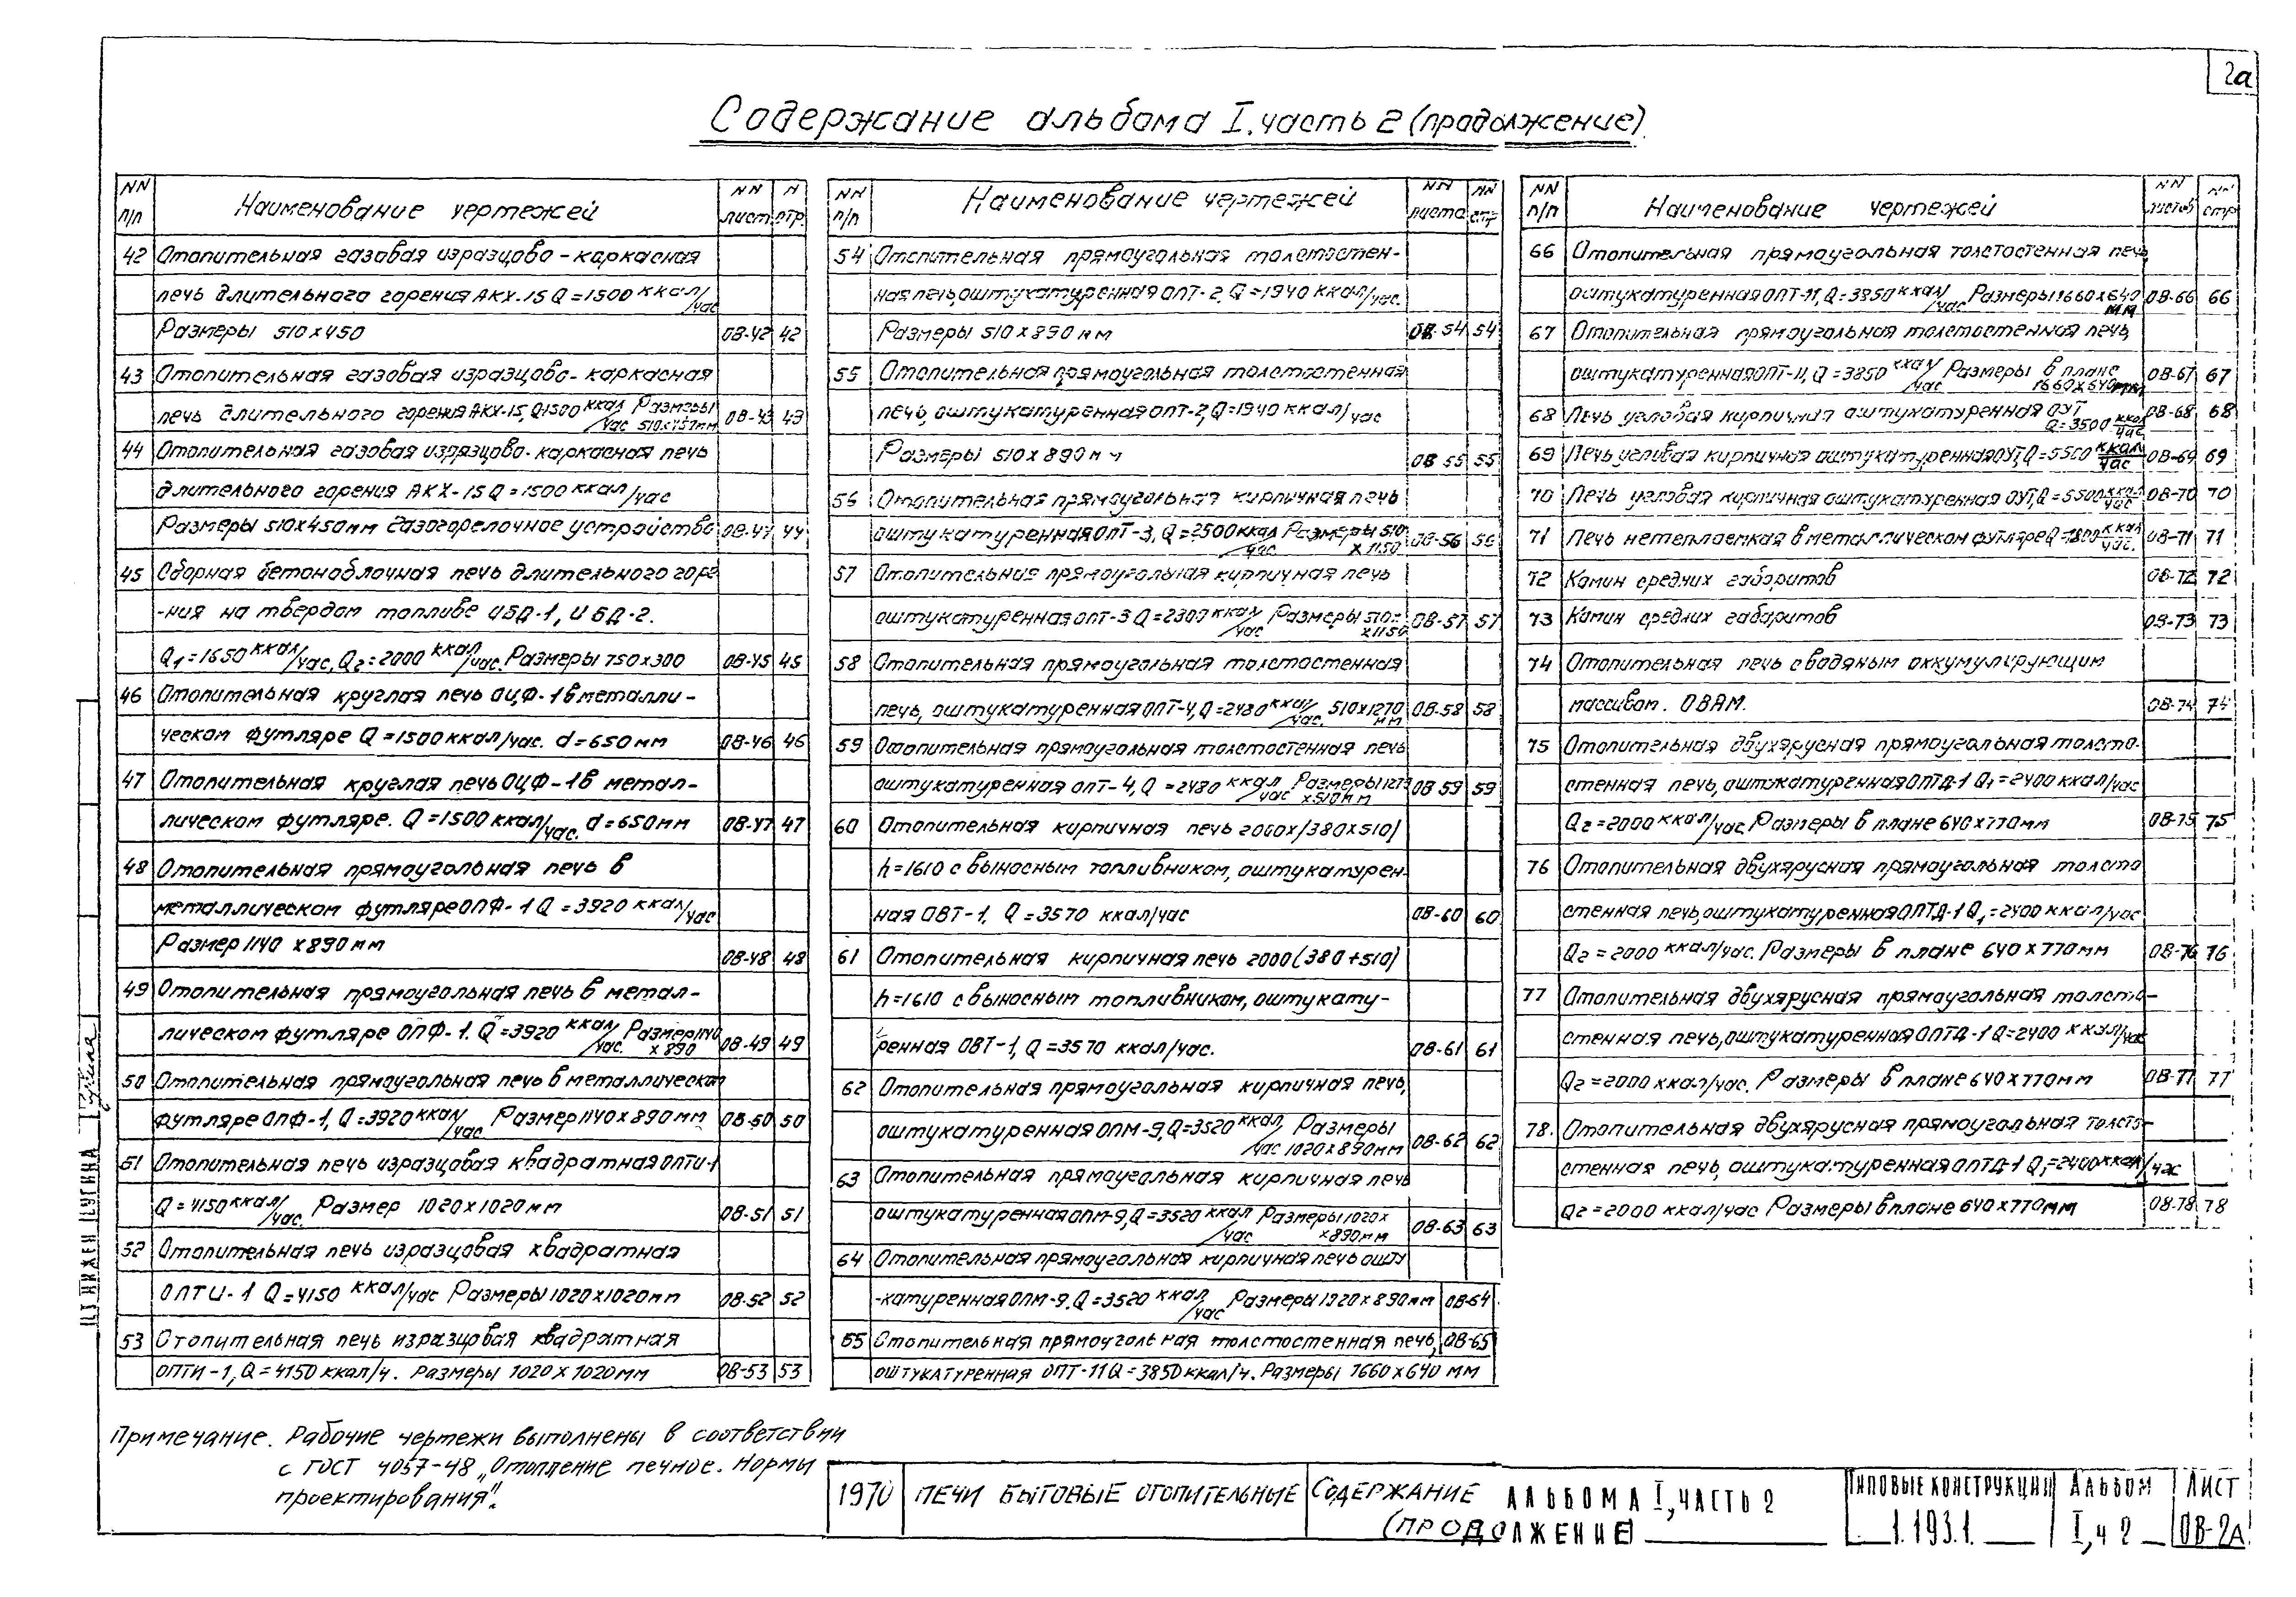 2а
Содержание альбома I, часть 2 (продолжение)
NN п/п Наименование чертежей NN лист N стр.
42 Отопительная газовая изразцово-каркасная
печь длительного горения АКХ-15 Q=1500 ккал/час
Размеры 510х450 ОВ-42 42
43 Отопительная газовая изразцово-каркасная
печь длительного горения АКХ-15, Q1500 ккал/час Размеры 510х457мм ОВ-43 43
44 Отопительная газовая изразцово-каркасная печь
длительного горения АКХ-15 Q=1500 ккал/час
Размеры 510х450мм Газогорелочное устройство ОВ-44 44
45 Сборная бетоноблочная печь длительного горе
-ния на твердом топливе ИБД-1, ИБД-2.
Q1=1650 ккал/час, Q2=2000 ккал/час. Размеры 750х300 ОВ-45 45
46 Отопительная круглая печь ОЦФ-1 в металли-
ческом футляре Q=1500 ккал/час. d=650мм ОВ-46 46
47 Отопительная круглая печь ОЦФ-1 в метал-
лическом футляре. Q=1500 ккал/час. d=650мм ОВ-47 47
48 Отопительная прямоугольная печь в
металлическом футляре ОПФ-1 Q=3920 ккал/час
Размер 1140 х890мм ОВ-48 48
49 Отопительная прямоугольная печь в метал-
лическом футляре ОПФ-1. Q=3920 ккал/час. Размер 1140 х 890 ОВ-49 49
50 Отопительная прямоугольная печь в металлическом
футляре ОПФ-1, Q=3920 ккал/час Размер 1140х890мм ОВ-50 50
51 Отопительная печь изразцовая квадратная ОПТИ-1
Q=4150 ккал/час. Размер 1020х1020мм ОВ-51 51
52 Отопительная печь изразцовая квадратная
ОПТИ-1 Q=4150 ккал/час Размеры 1020х1020мм ОВ-52 52
53 Отопительная печь изразцовая квадратная
ОПТИ-1, Q=4150 ккал/ч. Размеры 1020х1020мм ОВ-53 53
NN п/п Наименование чертежей NN листа NN стр
54 Отопительная прямоугольная толстостен-
ная печь оштукатуренная ОПТ-2, Q=1940 ккал/час.
Размеры 510х890 мм ОВ 54 54
55 Отопительная прямоугольная толстостенная
печь, оштукатуренная ОПТ-2, Q=1940 ккал/час
Размеры 510х890мм ОВ 55 55
56 Отопительная прямоугольная кирпичная печь
оштукатуренная ОПТ-3, Q=2500 ккал/час Размеры 510 х 1150 ОВ-56 56
57 Отопительная прямоугольная кирпичная печь
оштукатуренная ОПТ-3 Q=2300 ккал/час Размеры 510х х1150 ОВ-57 57
58 Отопительная прямоугольная толстостенная
печь, оштукатуренная ОПТ-4, Q=2480 ккал/час. 510х1270 мм ОВ-58 58
59 Отопительная прямоугольная толстостенная печь
оштукатуренная ОПТ-4, Q=2480 ккал/час Размеры 1273 х510мм ОВ 59 59
60 Отопительная кирпичная печь 2000х/380х510/
h=1610 с выносным топливником, оштукатурен-
ная ОВТ-1, Q=3570 ккал/час ОВ-60 60
61 Отопительная кирпичная печь 2000(380+510)
h=1610 с выносным топливником, оштукату-
ренная ОВТ-1, Q=3570 ккал/час. ОВ-61 61
62 Отопительная прямоугольная кирпичная печь,
оштукатуренная ОПМ-9, Q=3520 ккал/час Размеры 1020х890мм ОВ-62 62
63 Отопительная прямоугольная кирпичная печь
оштукатуренная ОПМ-9, Q=3520 ккал/час Размеры 1020х х890мм ОВ-63 63
64 Отопительная прямоугольная кирпичная печь ошту
-катуренная ОПМ-9. Q=3520 ккал/час Размеры 1920х890мм ОВ-64
65 Отопительная прямоугольная толстостенная печь, ОВ-65
оштукатуренная ОПТ-11 Q=3850 ккал/ч. Размеры 1660х640 мм
NN п/п Наименование чертежей NN листов NN стр
66 Отопительная прямоугольная толстостенная печь
оштукатуренная ОПТ-11, Q=3850 ккал/час Размеры 1660х640 мм ОВ-66 66
67 Отопительная прямоугольная толстостенная печь
оштукатуренная ОПТ-11, Q=3850 ккал/час Размеры в плане 1660х640мм ОВ-67 67
68 Печь угловая кирпичная оштукатуренная ОУТ Q=3500 ккал/час ОВ-68 68
69 Печь угловая кирпичная оштукатуренная ОУТ, Q=5500 ккал/час ОВ-69 69
70 Печь угловая кирпичная оштукатуренная ОУТ, Q=5500 ккал/час ОВ-70 70
71 Печь нетеплоемкая в металлическом футляре Q=1800 ккал/час. ОВ-71 71
72 Камин средних габаритов ОВ-72 72
73 Камин средних габаритов ОВ-73 73
74 Отопительная печь с водяным аккумулирующим
массивом. ОВАМ. ОВ-74 74
75 Отопительная двухярусная прямоугольная толсто-
стенная печь, оштукатуренная ОПТД-1 Q1=2400 ккал/час
Q2=2000 ккал/час Размеры в плане 640х770мм ОВ-75 75
76 Отопительная двухярусная прямоугольная толсто
стенная печь, оштукатуренная ОПТД-1 Q1=2400 ккал/час
Q2=2000 ккал/час. Размеры в плане 640х770мм ОВ-76 76
77 Отопительная двухярусная прямоугольная толсто-
стенная печь, оштукатуренная ОПТД-1 Q=2400 ккал/час
Q2=2000 ккал/час. Размеры в плане 640х770мм ОВ-77 77
78. Отопительная двухярусная прямоугольная толсто-
стенная печь, оштукатуренная ОПТД-1 Q1=2400 ккал/час
Q2=2000 ккал/час Размеры в плане 640х770мм ОВ-78 78
Примечание. Рабочие чертежи выполнены в соответствии
с ГОСТ 4057-48 „Отопление печное. Нормы
проектирования".
1970 ПЕЧИ БЫТОВЫЕ ОТОПИТЕЛЬНЫЕ СОДЕРЖАНИЕ АЛЬБОМА I, ЧАСТЬ 2
(ПРОДОЛЖЕНИЕ)
ТИПОВЫЕ КОНСТРУКЦИИ 1.193.1. АЛЬБОМ I, ч 2 ЛИСТ ОВ-2А